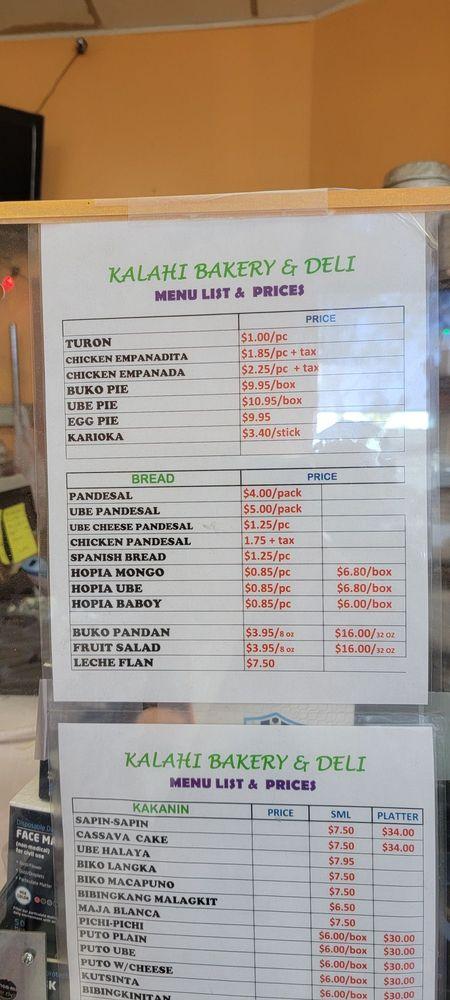 KALAHI BAKERY & DELI
MENU LIST & PRICES
PRICE
TURON $1.00/pc
CHICKEN EMPANADITA $1.85/pc + tax
CHICKEN EMPANADA $2.25/pc + tax
BUKO PIE $9.95/box
UBE PIE $10.95/box
EGG PIE $9.95
KARIOKA $3.40/stick
BREAD PRICE
PANDESAL $4.00/pack
UBE PANDESAL $5.00/pack
UBE CHEESE PANDESAL $1.25/pc
CHICKEN PANDESAL 1.75 + tax
SPANISH BREAD $1.25/pc
HOPIA MONGO $0.85/pc $6.80/box
HOPIA UBE $0.85/pc $6.80/box
HOPIA BABOY $0.85/pc $6.00/box
BUKO PANDAN $3.95/8 oz $16.00/32 oz
FRUIT SALAD $3.95/8 oz $16.00/32 oz
LECHE FLAN $7.50
KALAHI BAKERY & DELI
MENU LIST & PRICES
KAKANIN PRICE SML PLATTER
SAPIN-SAPIN $7.50 $34.00
CASSAVA CAKE $7.50 $34.00
UBE HALAYA $7.95
BIKO LANGKA $7.50
BIKO MACAPUNO $7.50
BIBINGKANG MALAGKIT $6.50
MAJA BLANCA $7.50
PICHI-PICHI $6.00/box $30.00
PUTO PLAIN $6.00/box $30.00
PUTO UBE $6.00/box $30.00
PUTO W/CHEESE $6.00/box $30.00
KUTSINTA $6.00/box $30.00
BIBINGKINITAN
Disposable
FACE MA
(non-medical)
for civil use